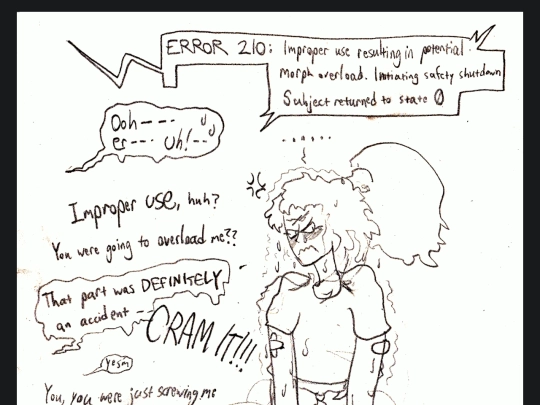 ERROR 210: Improper use resulting in potential
morph overload. Initiating safety shutdown
Subject returned to state 0
Ooh----
er---- uh!--
......
Improper use, huh?
You were going to overload me??
That part was DEFINITELY
an accident --
CRAM IT!!!
yesm
You, you were just screwing me